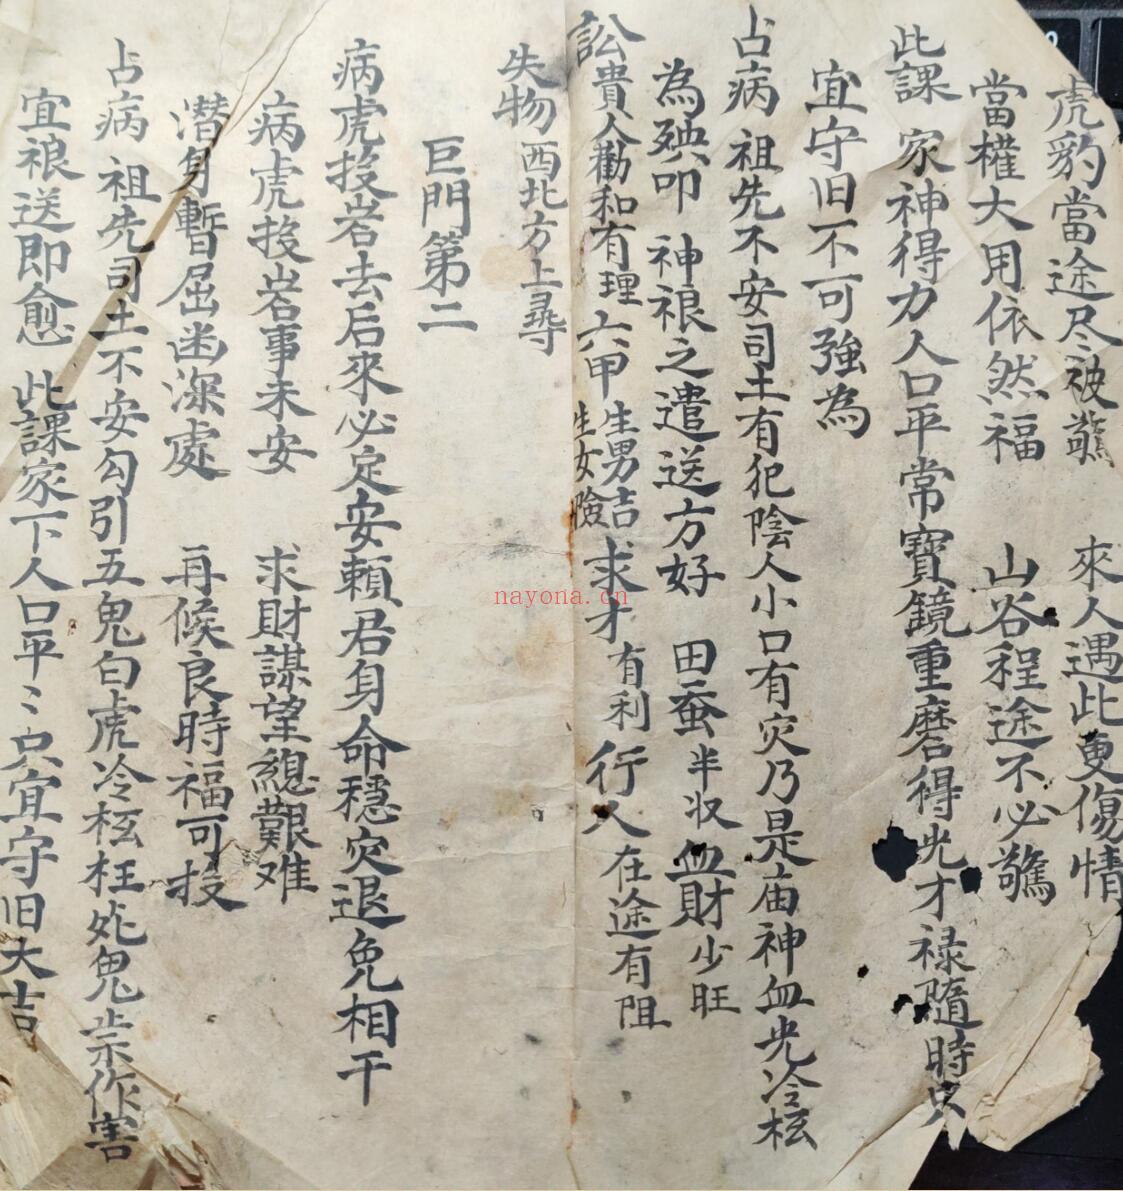 虎豹當途尽被驚 來人遇此更傷情
當權大用依然福 山谷程途不必驚
此課 家神得力人口平常寶鏡重磨得光才禄隨時只
宜守旧不可強為
占病 祖先不安司土有犯陰人小口有灾乃是庙神血光冷枉
為殃叩 神祓之遣送方好 田蚕半収血財少旺
訟貴人勸和有理 六甲 生男吉 生女險 求才有利 行人在途有阻
失物 西北方上尋
巨門第二
病虎投岩去后來必定安頼君身命穩灾退免相干
病虎投岩事未安 求財謀望總艱难
潛身暫屈幽深處 再候良時福可投
占病 祖先司土不安勾引五鬼白虎冷枉枉死鬼祟作害
宜送即愈 此課家下人口平〻只宜守旧大吉
nayona.cn